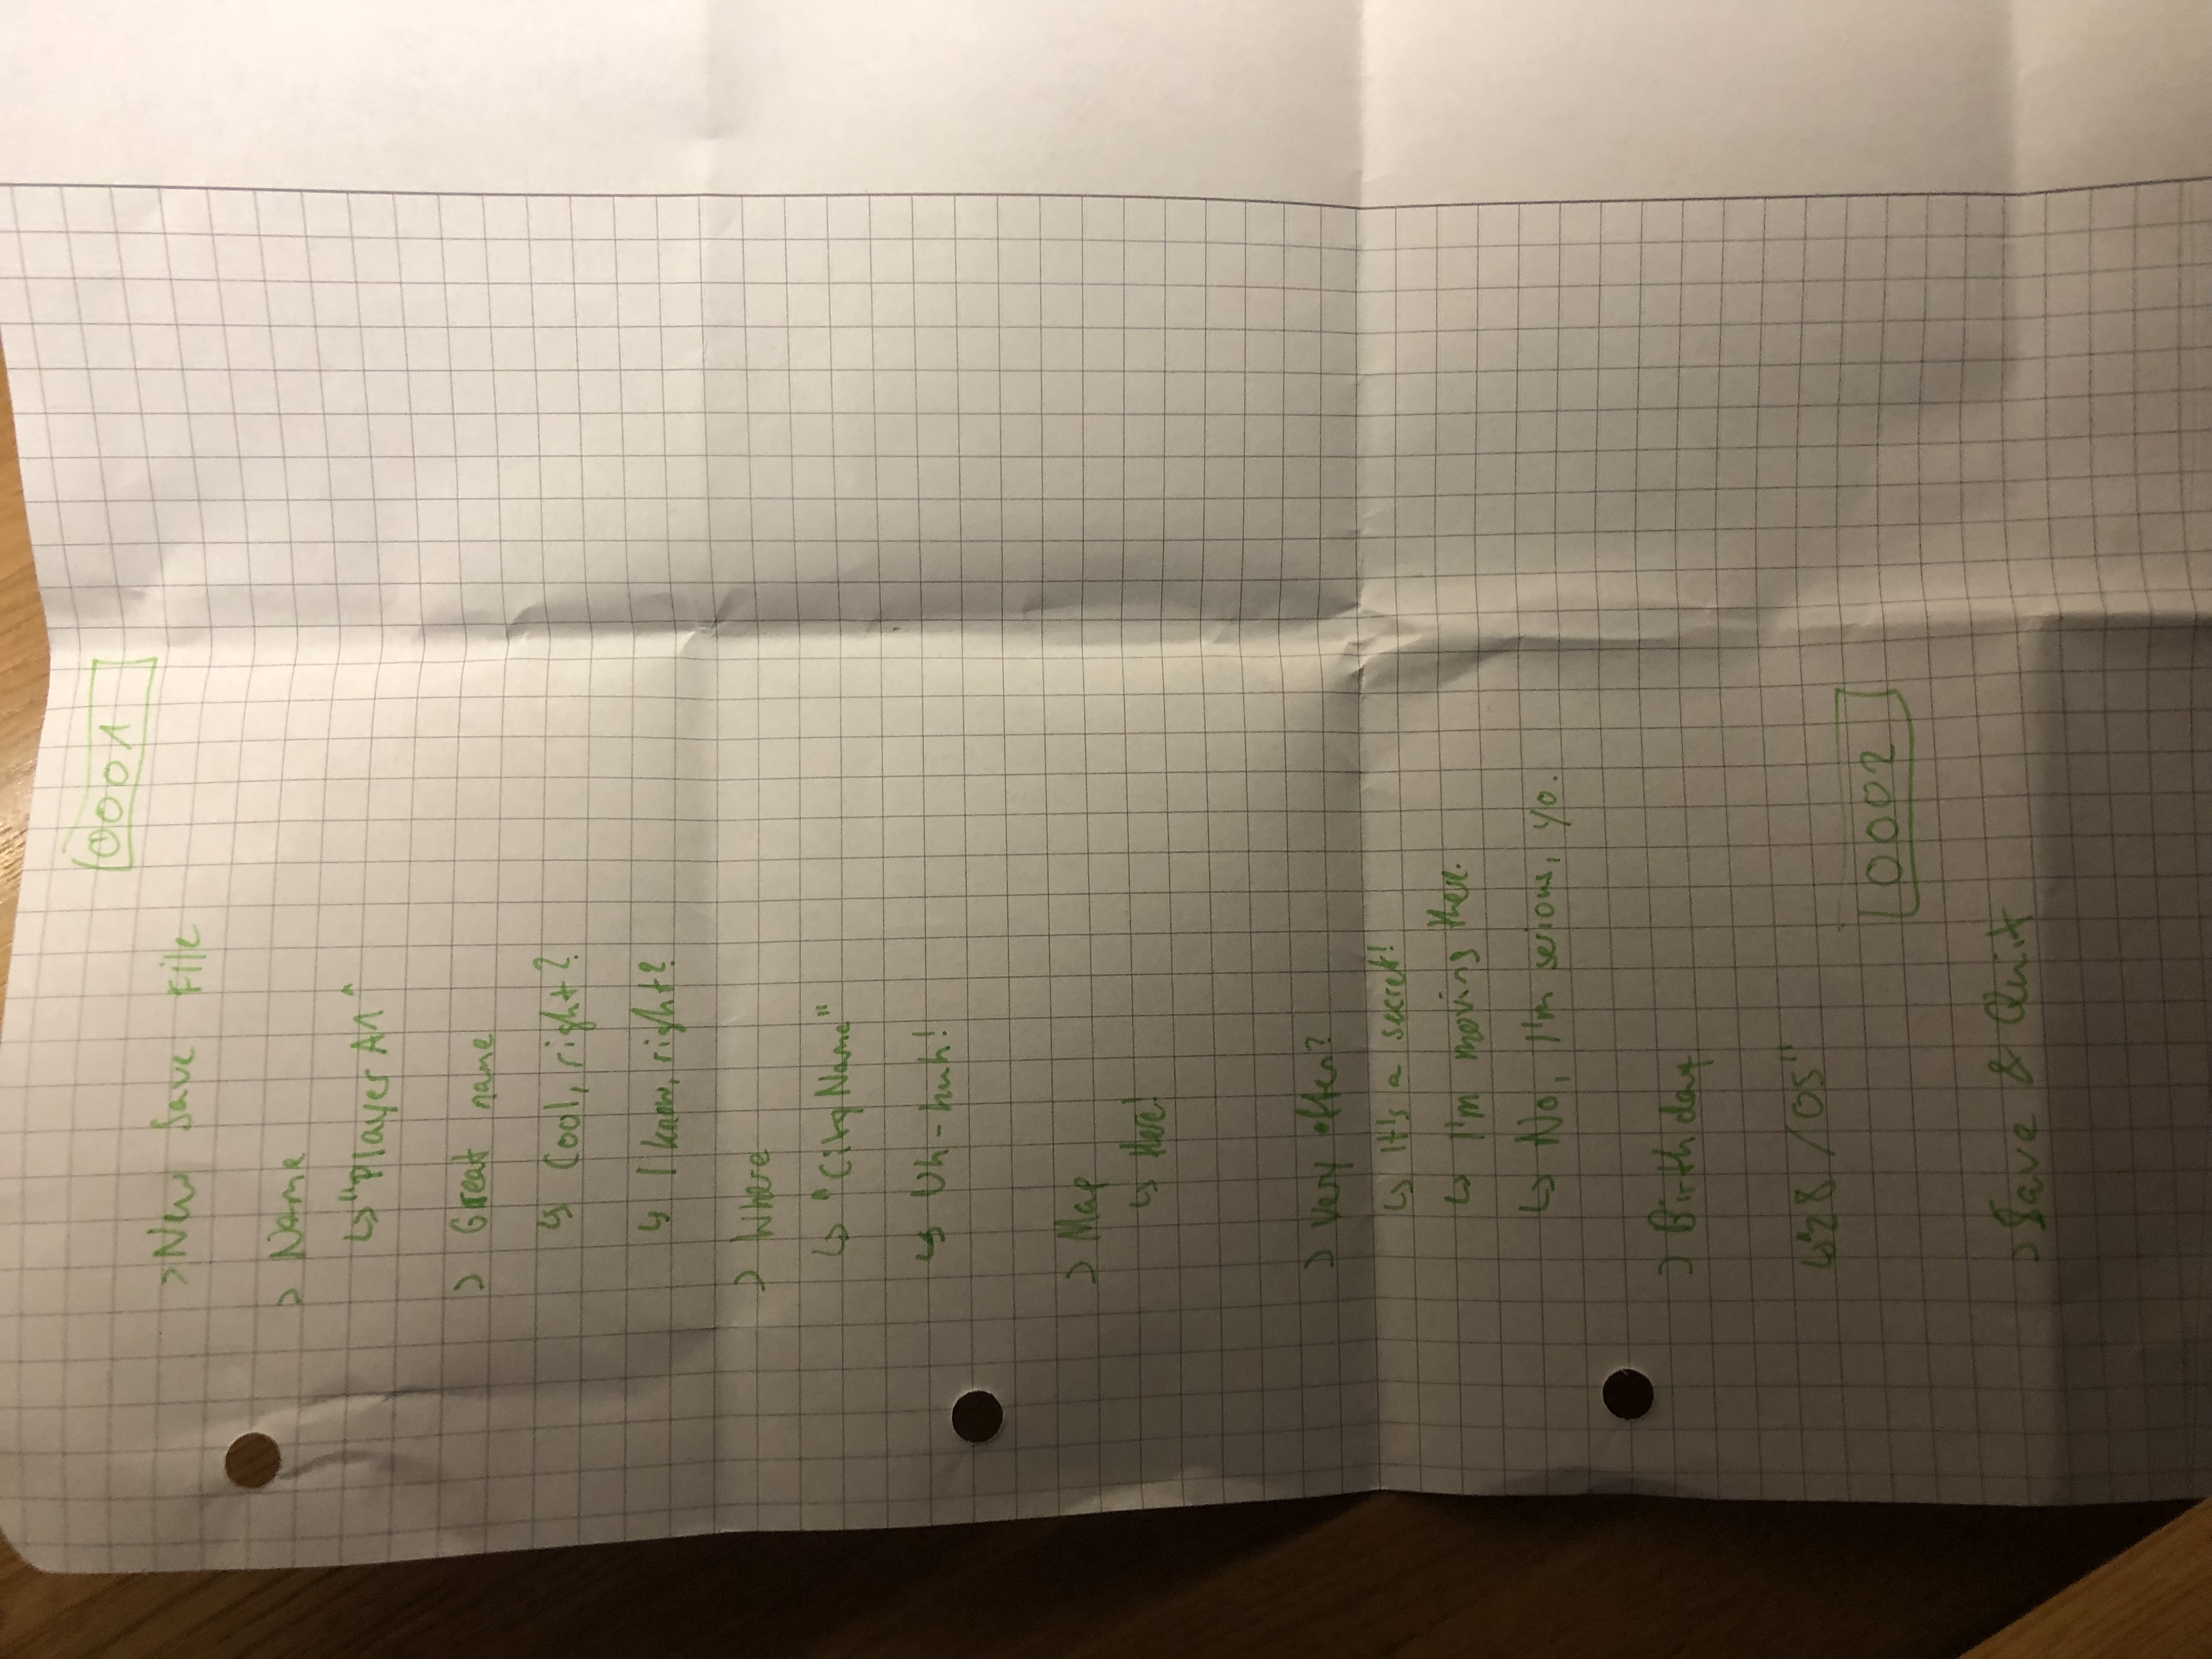 0001
> New Save File
> Name
↳ "Player A1"
> Great name
↳ Cool, right?
↳ I know, right?
> Where
↳ "CityName"
↳ Uh-huh!
> Map
↳ Here!
> Very often?
↳ It's a secret!
↳ I'm moving there.
↳ No, I'm serious, yo.
> Birthday
↳ "28/05"
0002
> Save & Quit